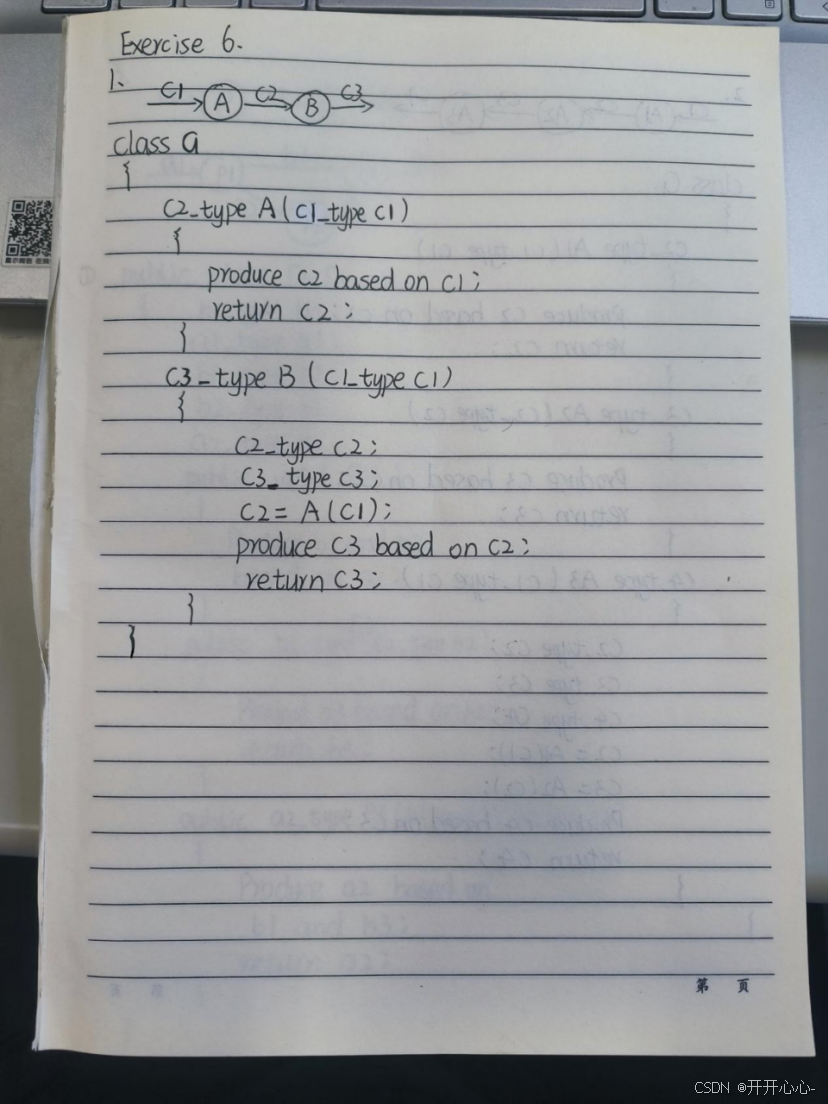 Exercise 6.
1.
C1 A C2 B C3
class G
{
C2_type A(C1_type C1)
{
produce C2 based on C1;
return C2;
}
C3_type B (C1_type C1)
{
C2_type C2;
C3_type C3;
C2= A(C1);
produce C3 based on C2;
return C3;
}
}
第 页
CSDN @开开心心-